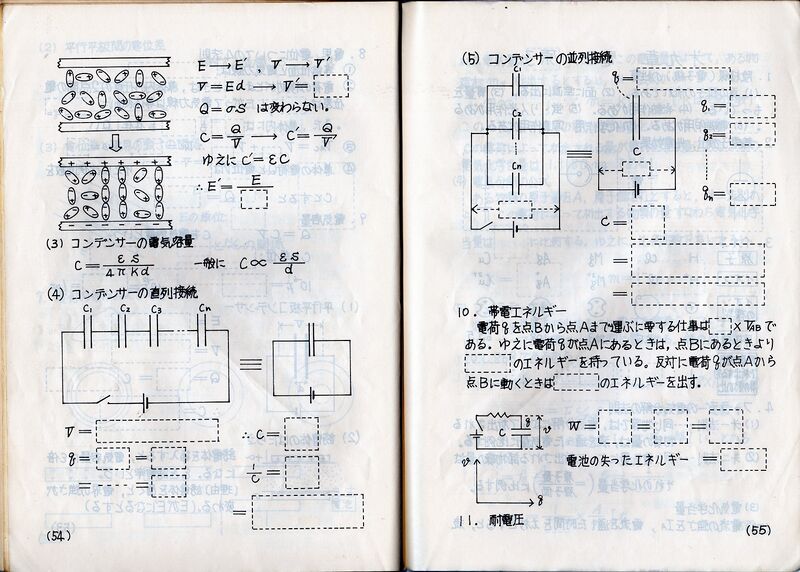 E → E′, V → V′
V = Ed → V′ =
Q = σS は変わらない。
C = Q/V → C′ = Q/V′
ゆえに C′ = εC
∴ E′ = E/
(3) コンデンサーの電気容量
C = εS/4πkd 一般に C ∝ εS/d
(4) コンデンサーの直列接続
C₁ C₂ C₃ Cn
V =
q = =
= ---- =
∴ C =
1/C =
=
(54)
(5) コンデンサーの並列接続
C₁
C₂
Cn
q =
C
q₁ =
q₂ =
qn =
C =
=
=
10. 帯電エネルギー
電荷qを点Bから点Aまで運ぶに要する仕事は × VABで
ある。ゆえに電荷qが点Aにあるときは,点Bにあるときより
のエネルギーを持っている。反対に電荷qが点Aから
点Bに動くときは のエネルギーを出す。
C q v
v
q
W = = =
電池の失ったエネルギー =
11. 耐電圧
(55)